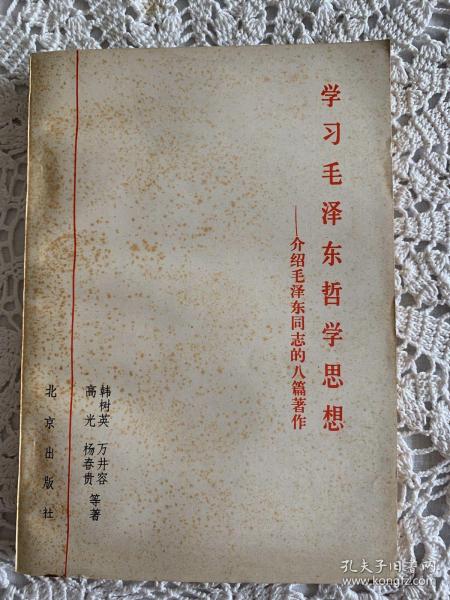 学习毛泽东哲学思想
——介绍毛泽东同志的八篇著作
韩树英 万井容
高光 杨春贵 等著
北京出版社
孔夫子旧书网
www.kongfz.com